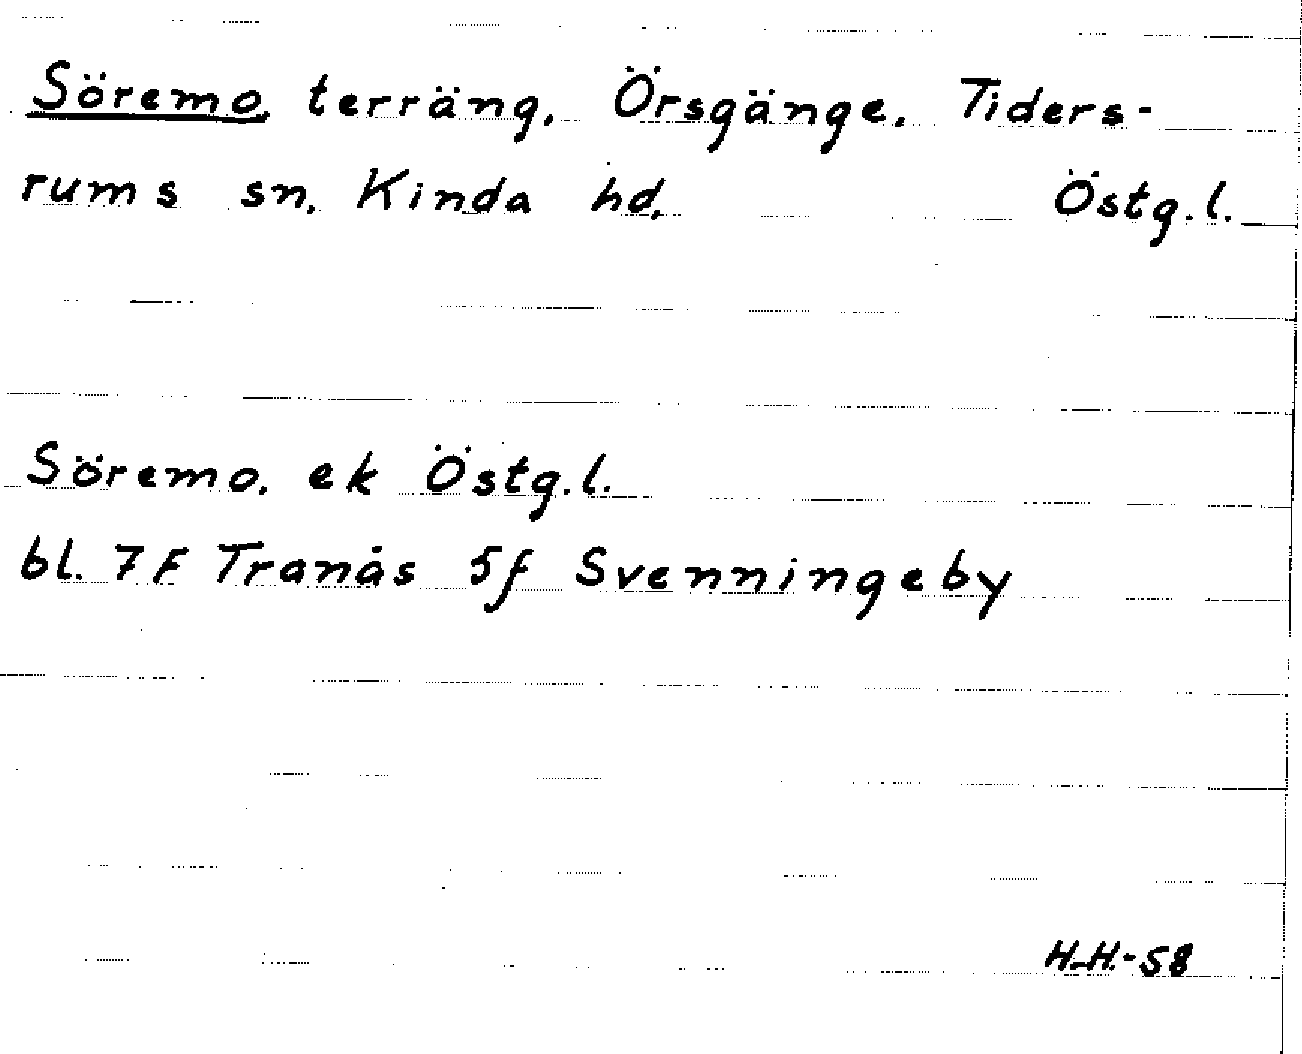 Söremo, terräng, Örsgänge, Tiders-
rums sn, Kinda hd, Östg.l.
Söremo, ek Östg.l.
bl. 7F Tranås 5f Svenningeby
H.H.-58